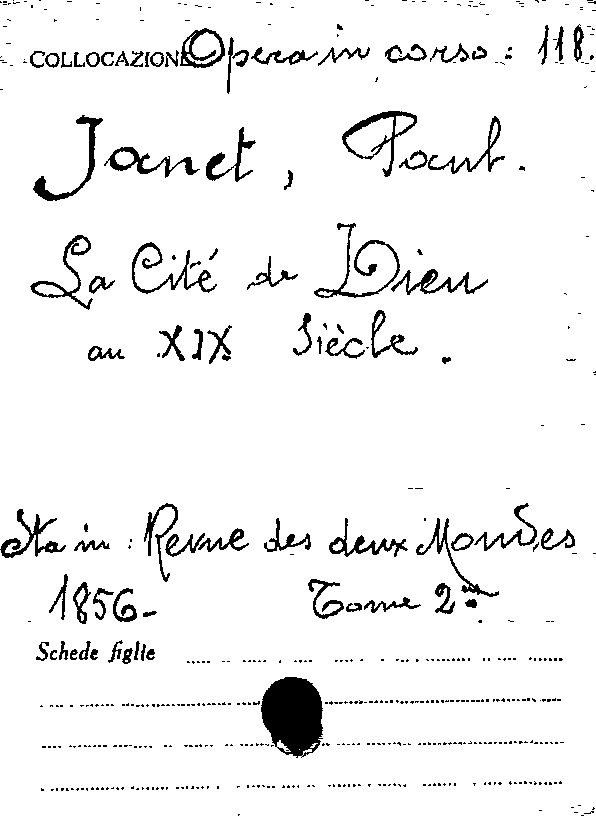 COLLOCAZIONE Opera in corso : 118.
Janet, Paul.
La Cité de Dieu
au XIX Siècle.
Sta in : Revue des deux Mondes
1856- Tome 2me
Schede figlie